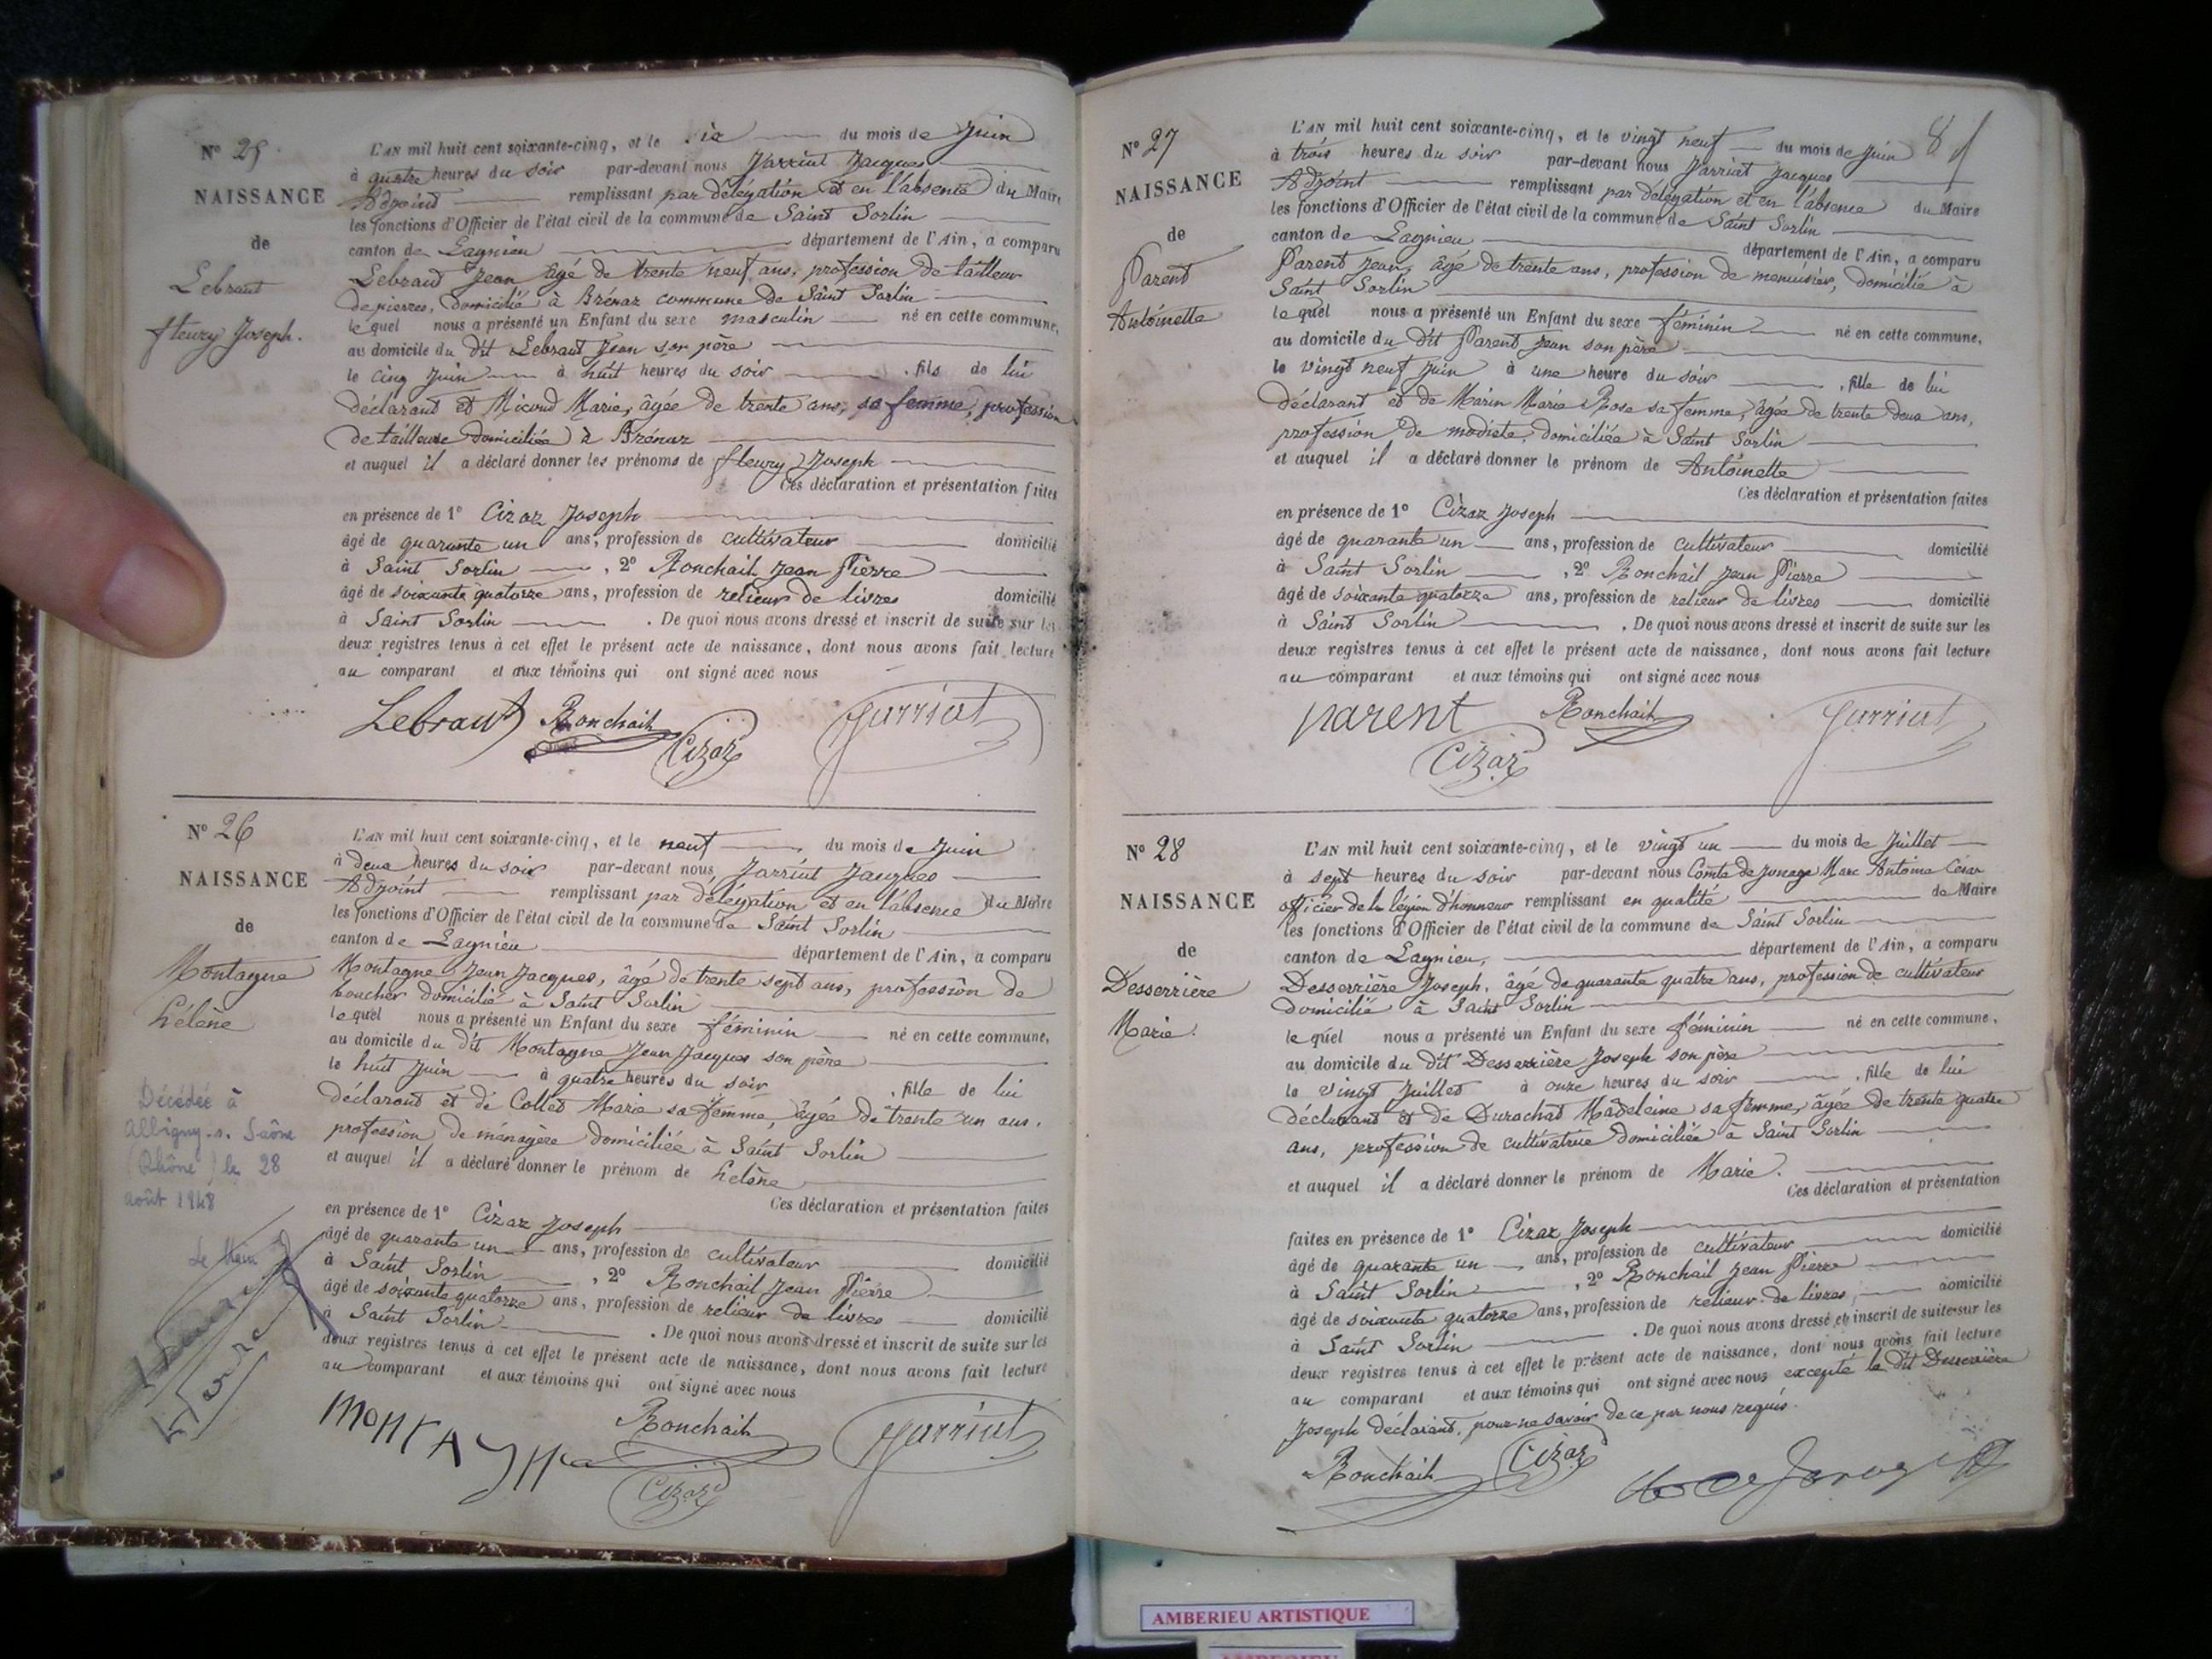 Nº 25
NAISSANCE
de
Lebraut
fleury Joseph.
L'AN mil huit cent soixante-cinq, et le six du mois de Juin
à quatre heures du soir par-devant nous Jarriat Jacques
Adjoint remplissant par délégation et en l'absence du Maire
les fonctions d'Officier de l'état civil de la commune de Saint Sorlin
canton de Lagnieu département de l'Ain, a comparu
Lebraut Jean âgé de trente neuf ans, profession de tailleur
de pierres, domicilié à Brénaz commune de Saint Sorlin
lequel nous a présenté un Enfant du sexe masculin né en cette commune,
au domicile du dit Lebraut Jean son père
le cinq Juin à huit heures du soir , fils de lui
déclarant et Micoud Marie, âgée de trente ans, sa femme, profession
de tailleuse domiciliée à Brénaz
et auquel il a déclaré donner les prénoms de fleury Joseph
Ces déclaration et présentation faites
en présence de 1º Cizaz Joseph
âgé de quarante un ans, profession de cultivateur domicilié
à Saint Sorlin , 2º Ronchail Jean Pierre
âgé de soixante quatorze ans, profession de relieur de livres domicilié
à Saint Sorlin . De quoi nous avons dressé et inscrit de suite sur les
deux registres tenus à cet effet le présent acte de naissance, dont nous avons fait lecture
au comparant et aux témoins qui ont signé avec nous
Lebraut Ronchail Cizaz Jarriat
Nº 26
NAISSANCE
de
Montagne
hélène
Décédée à
Albigny-s. Saône
(Rhône) le 28
août 1948
L'AN mil huit cent soixante-cinq, et le neuf du mois de Juin
à deux heures du soir par-devant nous Jarriat Jacques
Adjoint remplissant par délégation et en l'absence du Maire
les fonctions d'Officier de l'état civil de la commune de Saint Sorlin
canton de Lagnieu département de l'Ain, a comparu
Montagne Jean Jacques, âgé de trente sept ans, profession de
boucher domicilié à Saint Sorlin
lequel nous a présenté un Enfant du sexe féminin né en cette commune,
au domicile du dit Montagne Jean Jacques son père
le huit Juin à quatre heures du soir , fille de lui
déclarant et de Collet Marie sa femme, âgée de trente un ans,
profession de ménagère domiciliée à Saint Sorlin
et auquel il a déclaré donner le prénom de hélène
Ces déclaration et présentation faites
en présence de 1º Cizaz Joseph
âgé de quarante un ans, profession de cultivateur domicilié
à Saint Sorlin , 2º Ronchail Jean Pierre
âgé de soixante quatorze ans, profession de relieur de livres domicilié
à Saint Sorlin . De quoi nous avons dressé et inscrit de suite sur les
deux registres tenus à cet effet le présent acte de naissance, dont nous avons fait lecture
au comparant et aux témoins qui ont signé avec nous
Montagne Ronchail Cizaz Jarriat
8
Nº 27
NAISSANCE
de
Parent
Antoinette
L'AN mil huit cent soixante-cinq, et le vingt neuf du mois de Juin
à trois heures du soir par-devant nous Jarriat Jacques
Adjoint remplissant par délégation et en l'absence du Maire
les fonctions d'Officier de l'état civil de la commune de Saint Sorlin
canton de Lagnieu département de l'Ain, a comparu
Parent Jean, âgé de trente ans, profession de menuisier, domicilié à
Saint Sorlin
lequel nous a présenté un Enfant du sexe féminin né en cette commune,
au domicile du dit Parent Jean son père
le vingt neuf Juin à une heure du soir , fille de lui
déclarant et de Marin Marie Rose sa femme, âgée de trente deux ans,
profession de modiste, domiciliée à Saint Sorlin
et auquel il a déclaré donner le prénom de Antoinette
Ces déclaration et présentation faites
en présence de 1º Cizaz Joseph
âgé de quarante un ans, profession de cultivateur domicilié
à Saint Sorlin , 2º Ronchail Jean Pierre
âgé de soixante quatorze ans, profession de relieur de livres domicilié
à Saint Sorlin . De quoi nous avons dressé et inscrit de suite sur les
deux registres tenus à cet effet le présent acte de naissance, dont nous avons fait lecture
au comparant et aux témoins qui ont signé avec nous
parent Ronchail Cizaz Jarriat
Nº 28
NAISSANCE
de
Desserrière
Marie.
L'AN mil huit cent soixante-cinq, et le vingt un du mois de Juillet
à sept heures du soir par-devant nous Comte de Jonage Marc Antoine César
officier de la légion d'honneur remplissant en qualité de Maire
les fonctions d'Officier de l'état civil de la commune de Saint Sorlin
canton de Lagnieu, département de l'Ain, a comparu
Desserrière Joseph, âgé de quarante quatre ans, profession de cultivateur
domicilié à Saint Sorlin
lequel nous a présenté un Enfant du sexe féminin né en cette commune,
au domicile du dit Desserrière Joseph son père
le vingt Juillet à onze heures du soir , fille de lui
déclarant et de Durochat Madeleine sa femme, âgée de trente quatre
ans, profession de cultivatrice domiciliée à Saint Sorlin
et auquel il a déclaré donner le prénom de Marie.
Ces déclaration et présentation
faites en présence de 1º Cizaz Joseph domicilié
âgé de quarante un ans, profession de cultivateur
à Saint Sorlin , 2º Ronchail Jean Pierre
âgé de soixante quatorze ans, profession de relieur de livres, domicilié
à Saint Sorlin . De quoi nous avons dressé et inscrit de suite sur les
deux registres tenus à cet effet le présent acte de naissance, dont nous avons fait lecture
au comparant et aux témoins qui ont signé avec nous excepté le dit Desserrière
Joseph déclarant, pour ne savoir de ce par nous requis.
Ronchail Cizaz
AMBERIEU ARTISTIQUE